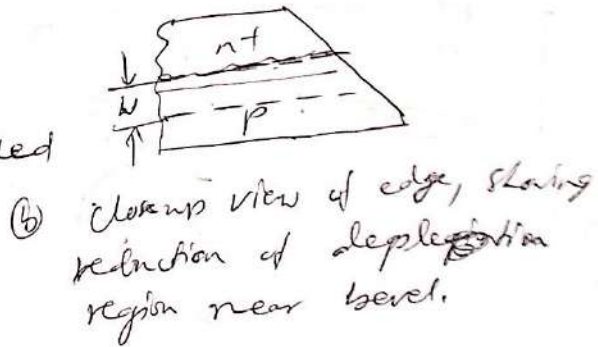 n+
W
P
led
(b) closeup view of edge, showing
reduction of depletion
region near bevel.